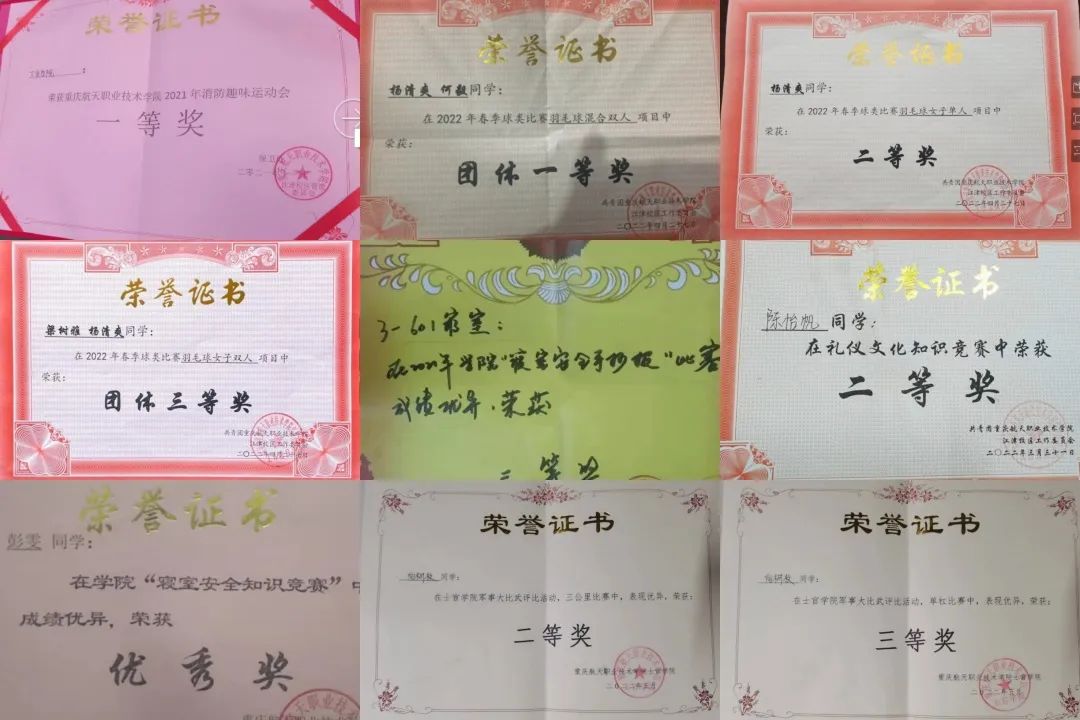 荣誉证书
荣获重庆航天职业技术学院2021年消防趣味运动会
一等奖
荣誉证书
杨清爽 何毅同学：
在2022年春季球类比赛羽毛球混合双人 项目中
荣获：
团体一等奖
共青团重庆航天职业技术学院
江津校区工作委员会
二〇二二年四月二十七日
荣誉证书
杨清爽同学：
在2022年春季球类比赛羽毛球女子单人 项目中
荣获：
二等奖
共青团重庆航天职业技术学院
江津校区工作委员会
二〇二二年四月二十七日
荣誉证书
梁树雅 杨清爽同学：
在2022年春季球类比赛羽毛球女子双人 项目中
荣获：
团体三等奖
共青团重庆航天职业技术学院
江津校区工作委员会
二〇二二年四月二十七日
3-601寝室：
学院"寝室安全手抄报"比赛
成绩优异，荣获
三等奖
荣誉证书
陈怡帆 同学：
在礼仪文化知识竞赛中荣获
二等奖
共青团重庆航天职业技术学院
江津校区工作委员会
二〇二二年三月三十一日
荣誉证书
彭雯 同学：
在学院“寝室安全知识竞赛”中
成绩优异，荣获
优秀奖
荣誉证书
同学：
在士官学院军事大比武评比活动，三公里比赛中，表现优异，荣获：
二等奖
重庆航天职业技术学院士官学院
二〇二二年五月
荣誉证书
同学：
在士官学院军事大比武评比活动，单杠比赛中，表现优异，荣获：
三等奖
重庆航天职业技术学院士官学院
二〇二二年五月